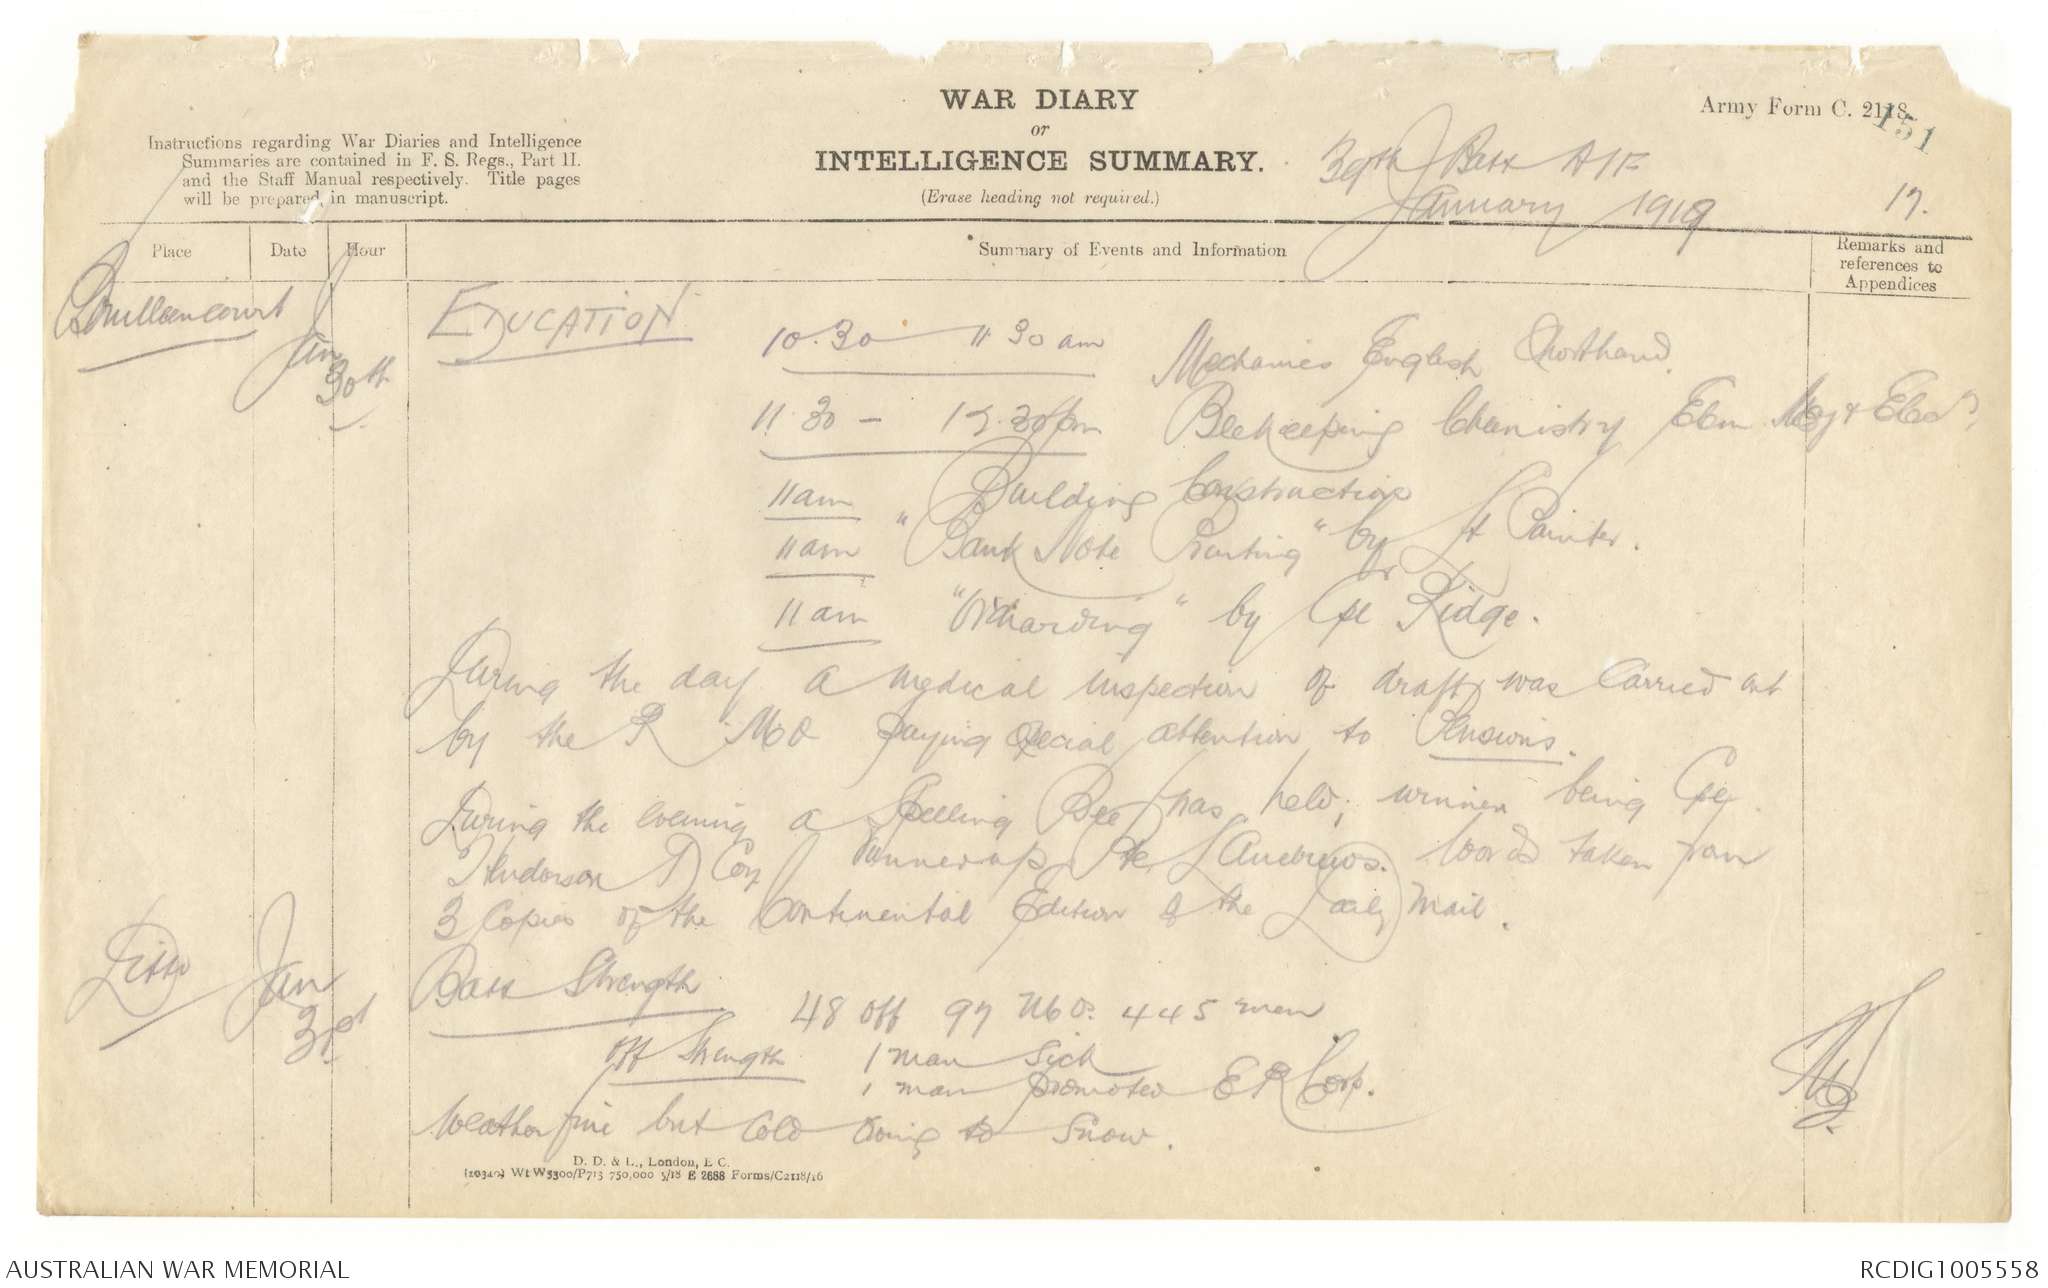 WAR DIARY
or
INTELLIGENCE SUMMARY.
(Erase heading not required.)
Army Form C. 2118.
151
Instructions regarding War Diaries and Intelligence
Summaries are contained in F. S. Regs., Part II.
and the Staff Manual respectively. Title pages
will be prepared in manuscript.
39th Batt AIF
January 1919
17.
Place
Date
Hour
Summary of Events and Information
Remarks and
references to
Appendices
Jan
30th
EDUCATION
10.30 11.30 am Mechanics English Shorthand.
11.30 - 12.30 pm Beekeeping Chemistry Elem. Mag & Elec
11am Building Construction
11am "Bank Note Printing" by Lt Painter.
11am "Orcharding" by Cpl Ridge.
During the day a medical inspection of draft was carried out
by the R M O paying special attention to Pensions.
During the evening a Spelling Bee was held, winner being Cpl
Henderson D Coy runner up Pte L Andrews. Words taken from
3 Copies of the Continental Edition of the Daily Mail.
Ditto
Jan
31st
Batt Strength
48 off 97 NCOs 445 men
Off Strength 1 man Sick
1 man promoted ER Corp.
Weather fine but Cold trying to Snow.
D. D. & L., London, E.C.
(10340) Wt W5300/P713 750,000 3/18 E 2688 Forms/C2118/16
AUSTRALIAN WAR MEMORIAL
RCDIG1005558